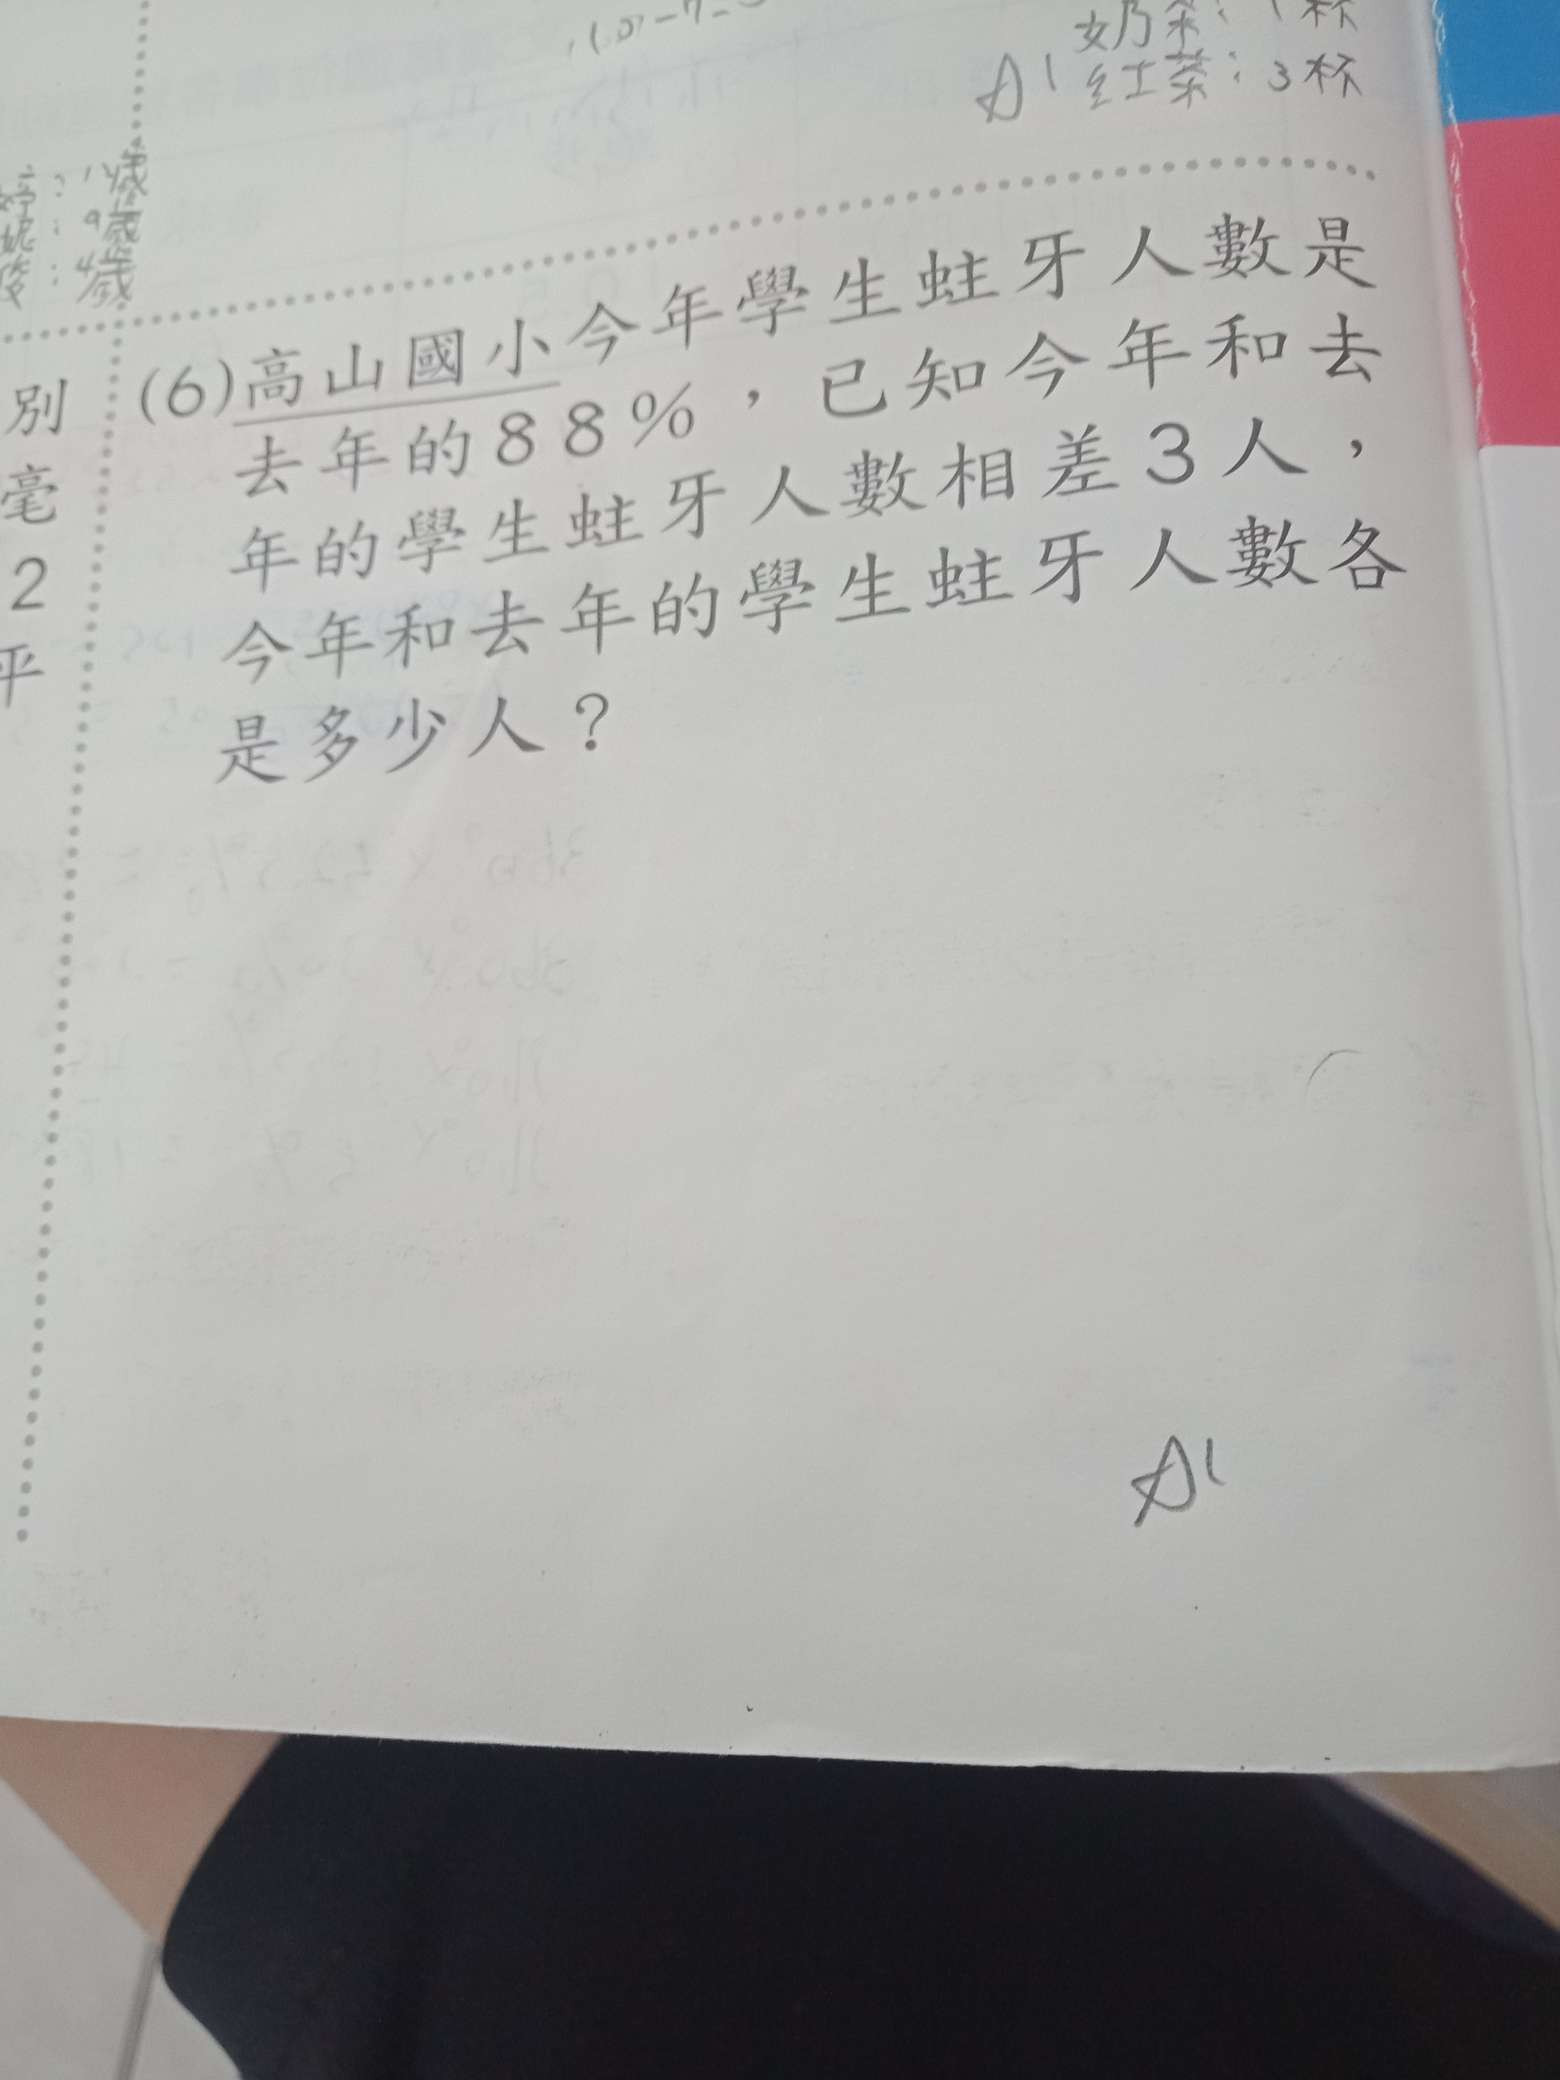 奶茶：1杯
A：紅茶：3杯
婷：14歲
妮：9歲
俊：4歲
別
毫
2
平
(6)高山國小今年學生蛀牙人數是
去年的88%，已知今年和去
年的學生蛀牙人數相差3人，
今年和去年的學生蛀牙人數各
是多少人？
A：